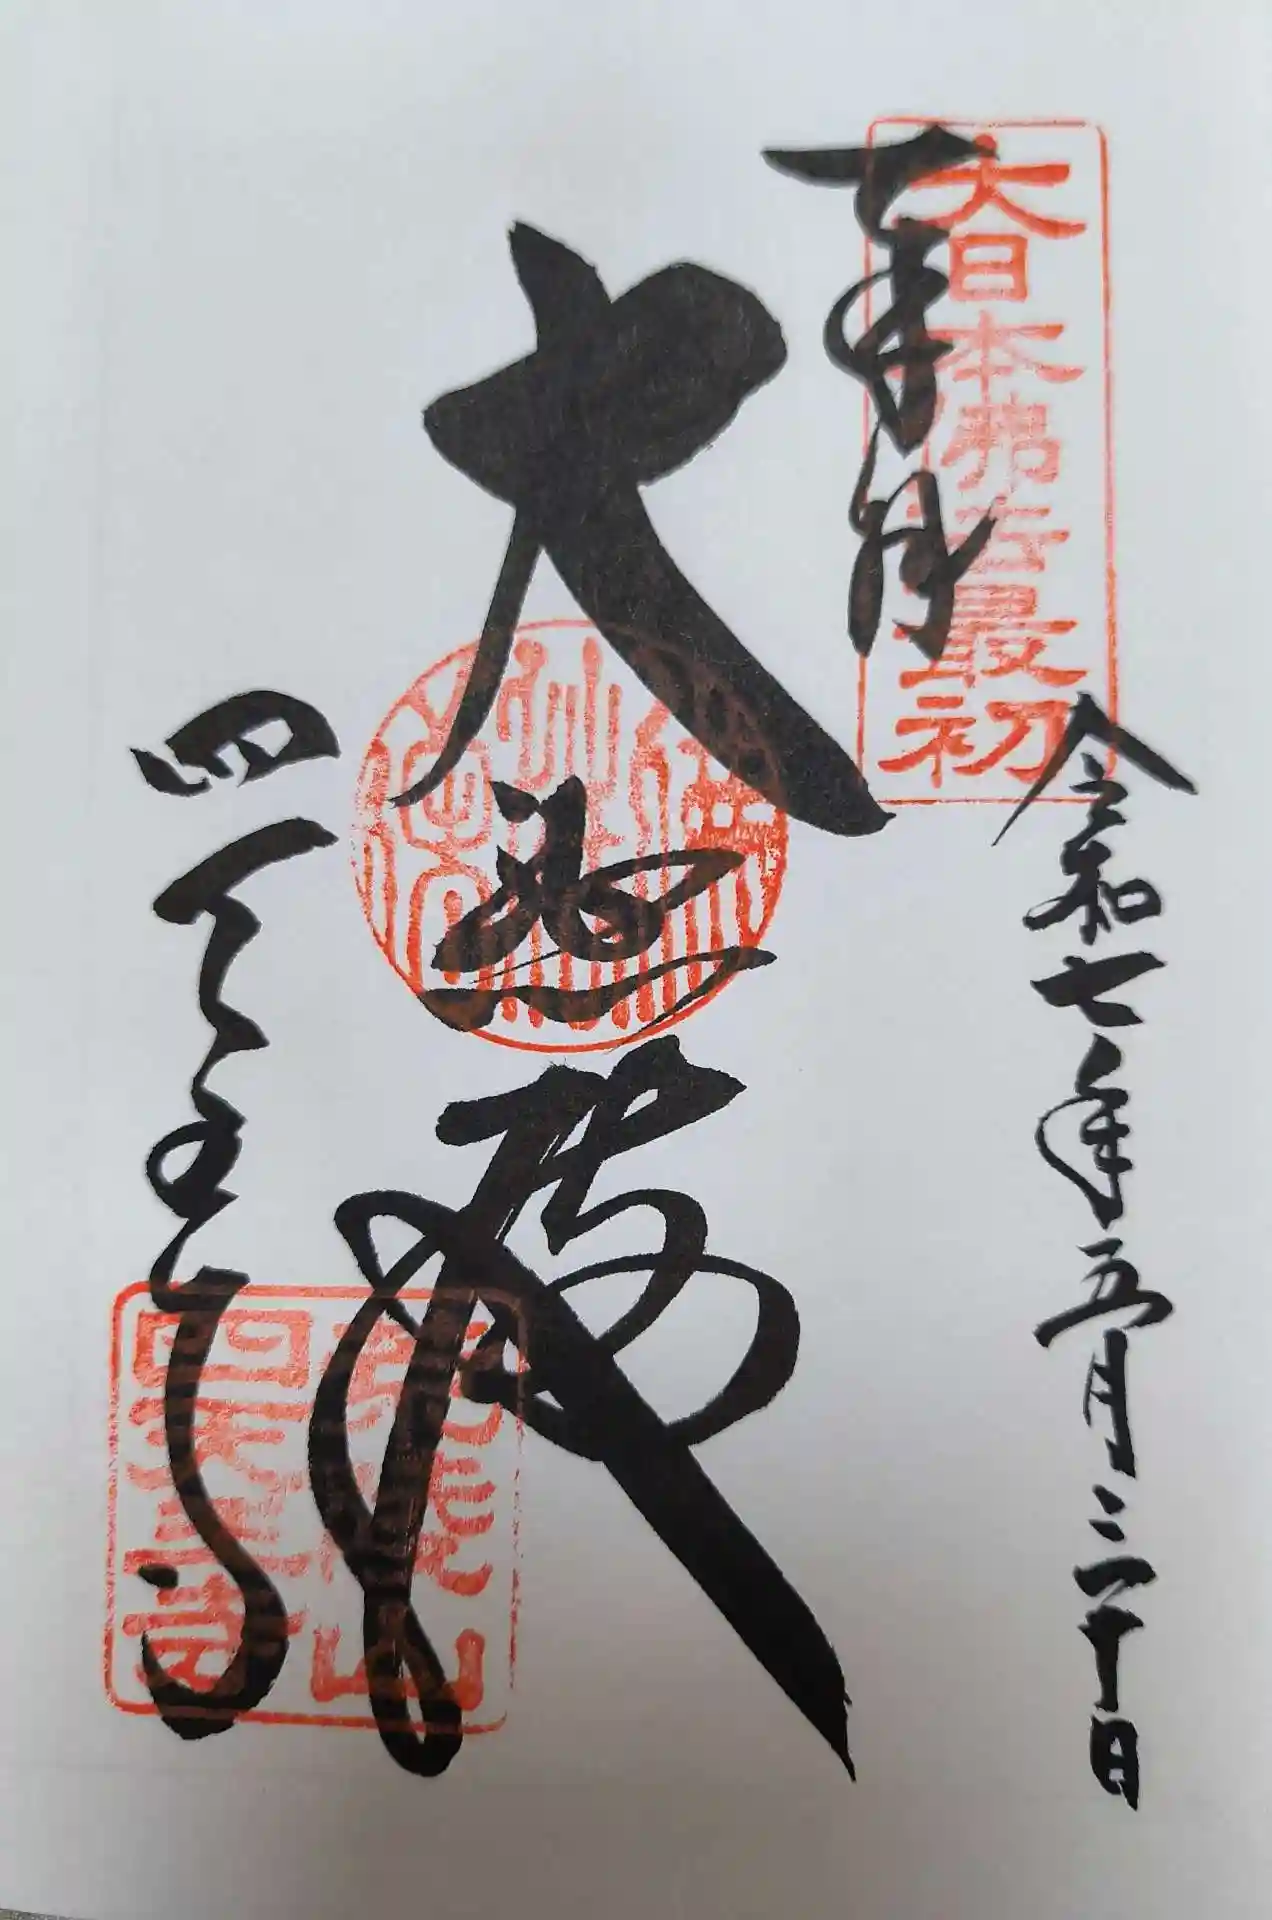 奉拝
大日本佛法最初
令和七年五月三十日
大悲殿
四天王寺
荒陵山
四天王寺